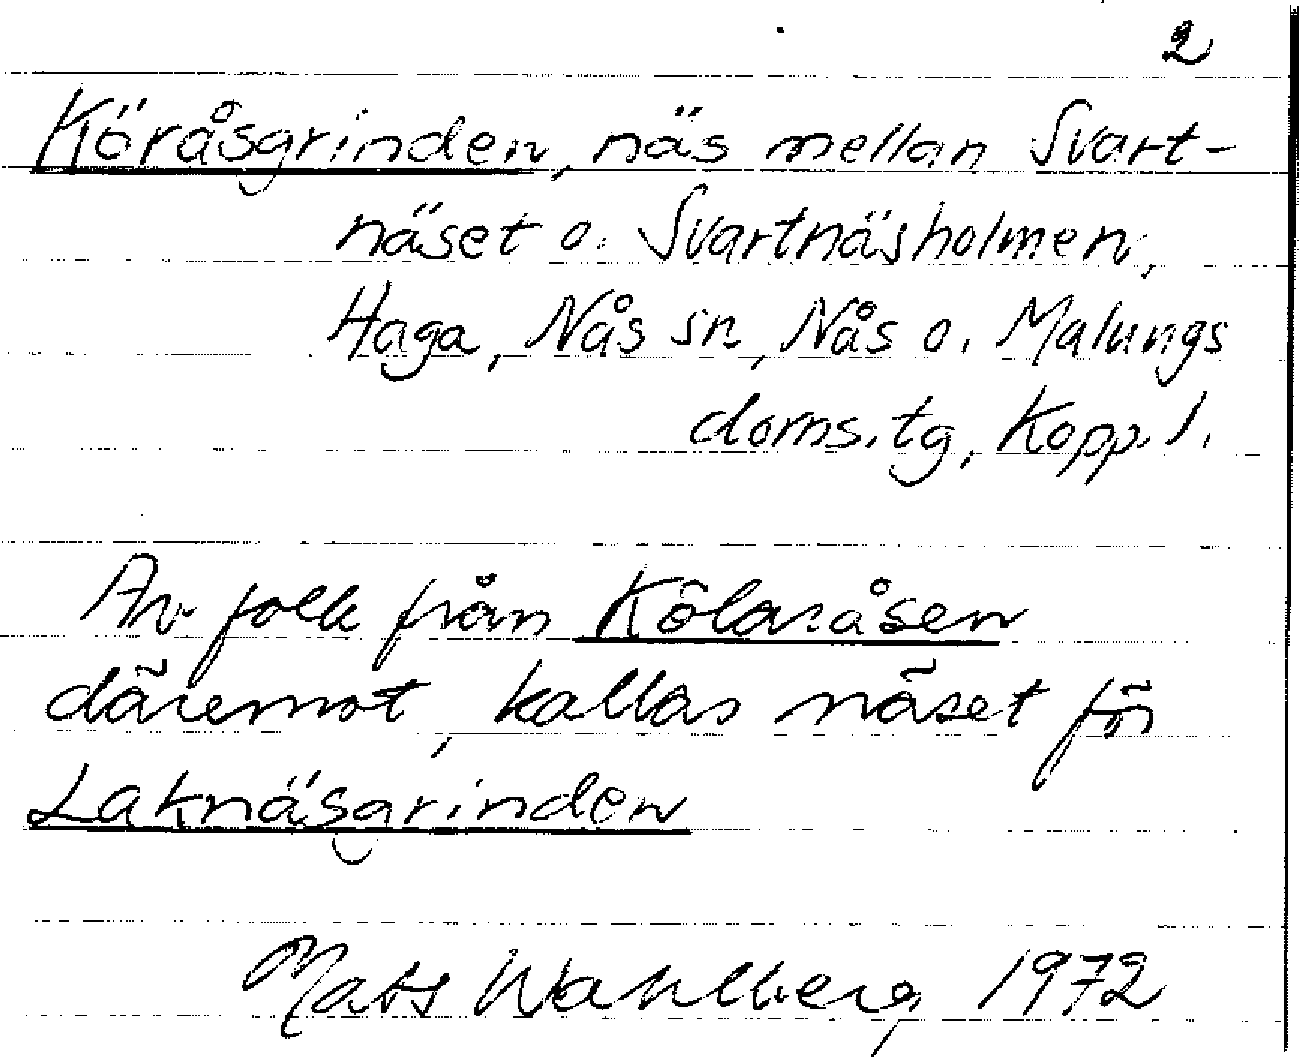 2
Köråsgrinden, näs mellan Svart-
näset o. Svartnäsholmen,
Haga, Nås sn, Nås o. Malungs
doms.tg, Kopp. l.
Av folk från Kölaråsen
däremot, kallas näset för
Laknäsgrinden
Mats Wahlberg 1972